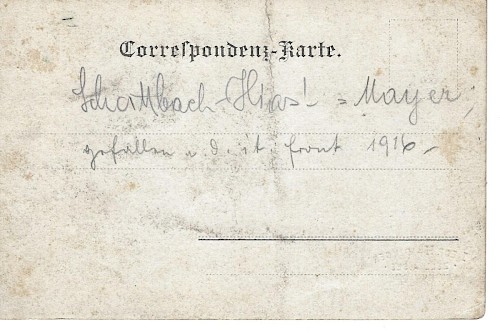 Correspondenz-Karte.
Schottbach-Hias'l = Mayer,
gefallen a. d. it. front 1916 –